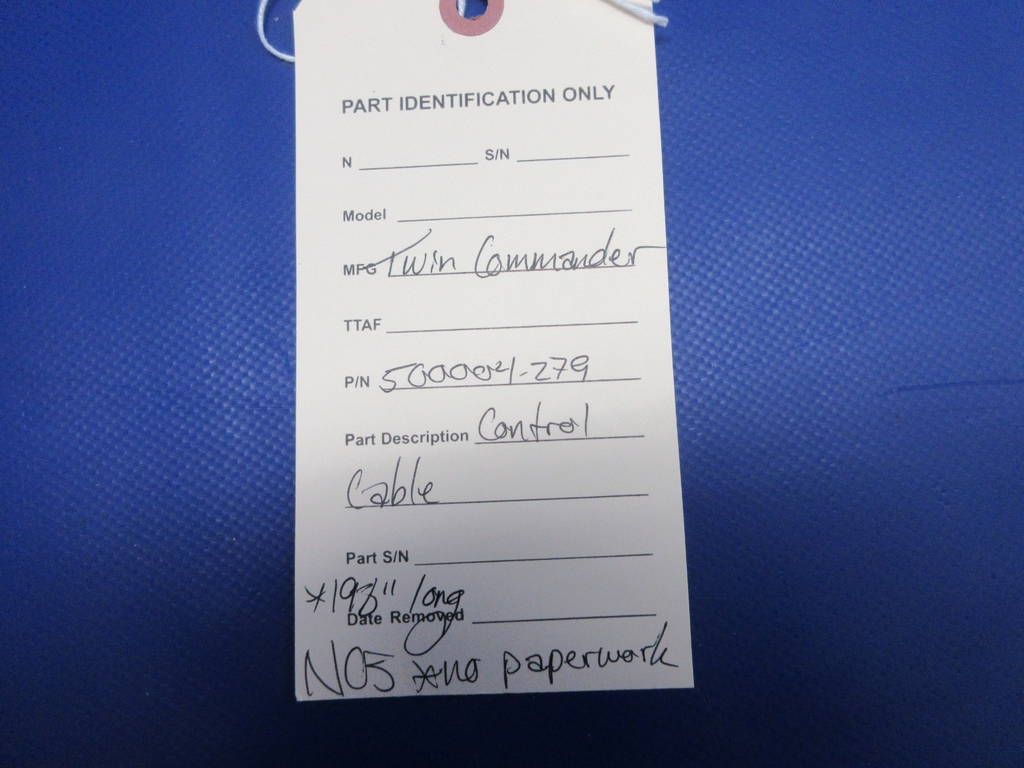 PART IDENTIFICATION ONLY
N S/N
Model
MFG Twin Commander
TTAF
P/N 5000021-279
Part Description Control
Cable
Part S/N
* long
Date Removed
NOS *no paperwork